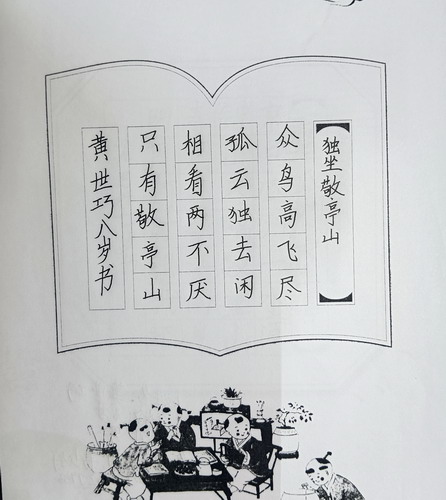 独坐敬亭山
众鸟高飞尽
孤云独去闲
相看两不厌
只有敬亭山
黄世巧八岁书